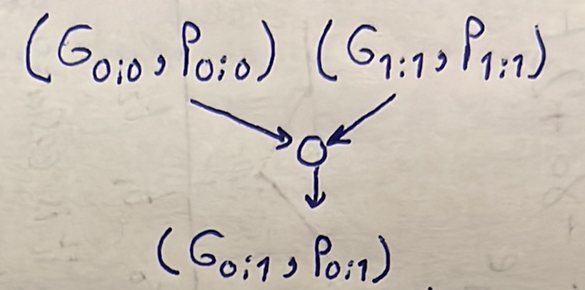 (G0:0, P0:0) (G1:1, P1:1)
(G0:1, P0:1)